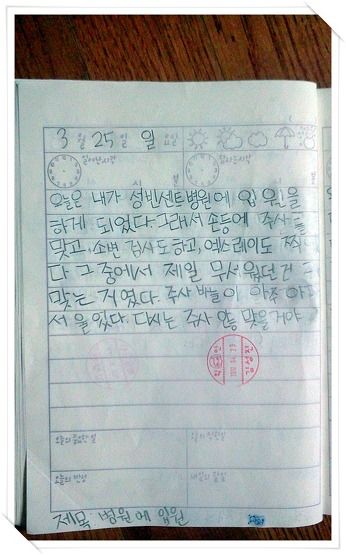 3월 25일 월요일
일어난시각 잠자는시각
시 분 시 분
오늘은 내가 성빈센트병원에 입원을
하게 되었다. 그래서 손등에 주사를
맞고, 소변 검사도 하고, 엑스레이도 찍었
다 그 중에서 제일 무서웠던 건
맞는 거였다. 주사 바늘이 아주 아
서 울었다. 다시는 주사 안 맞을거야
오늘의 중요한 일 오늘의 착한일
오늘의 반성 내일의 할일
제목: 병원에 입원